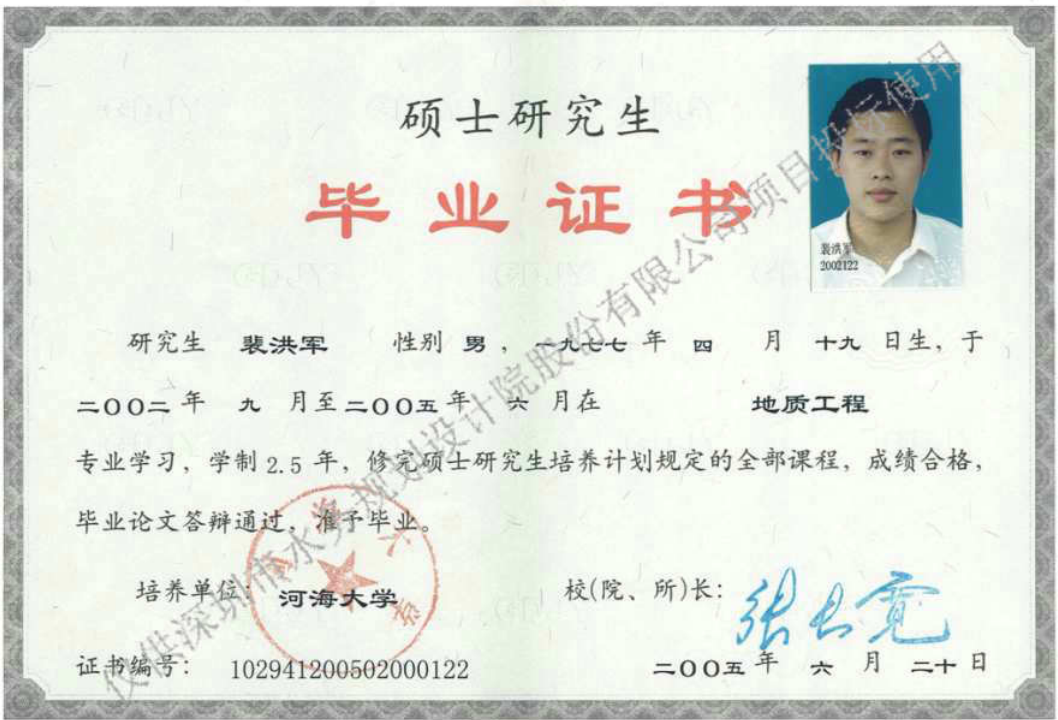 硕士研究生
毕业证书
裴洪军
2002122
研究生 裴洪军 性别 男，一九七七年 四 月 十九 日生，于
二〇〇二年 九 月至二〇〇五年 六 月在 地质工程
专业学习，学制2.5年，修完硕士研究生培养计划规定的全部课程，成绩合格，
毕业论文答辩通过，准予毕业。
培养单位：河海大学
校(院、所)长：张长宽
证书编号：102941200502000122
二〇〇五年 六 月 二十日
仅供深圳市水务规划设计院股份有限公司项目投标使用